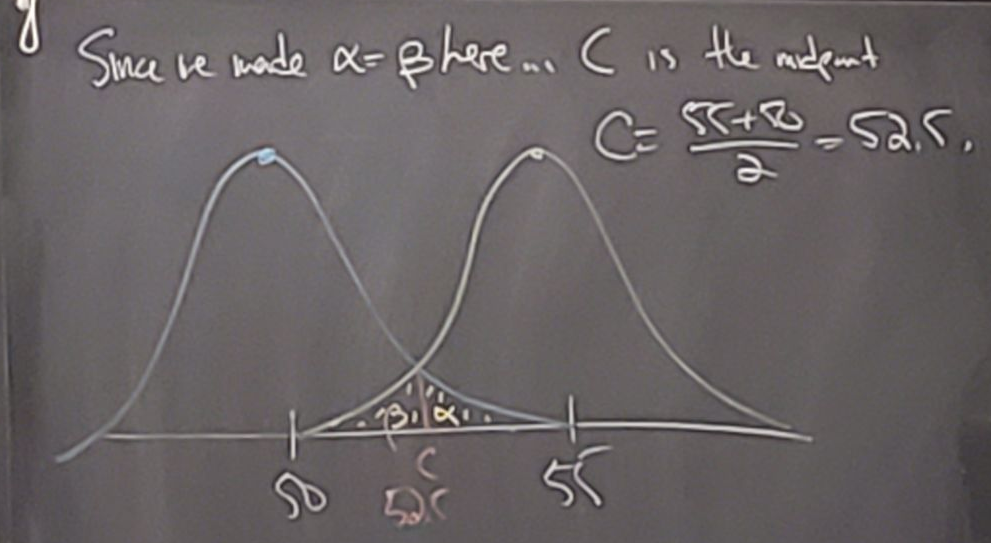 Since we made α=β here... C is the midpoint
C= (55+50)/2 = 52.5.
β α
C
50 52.5 55